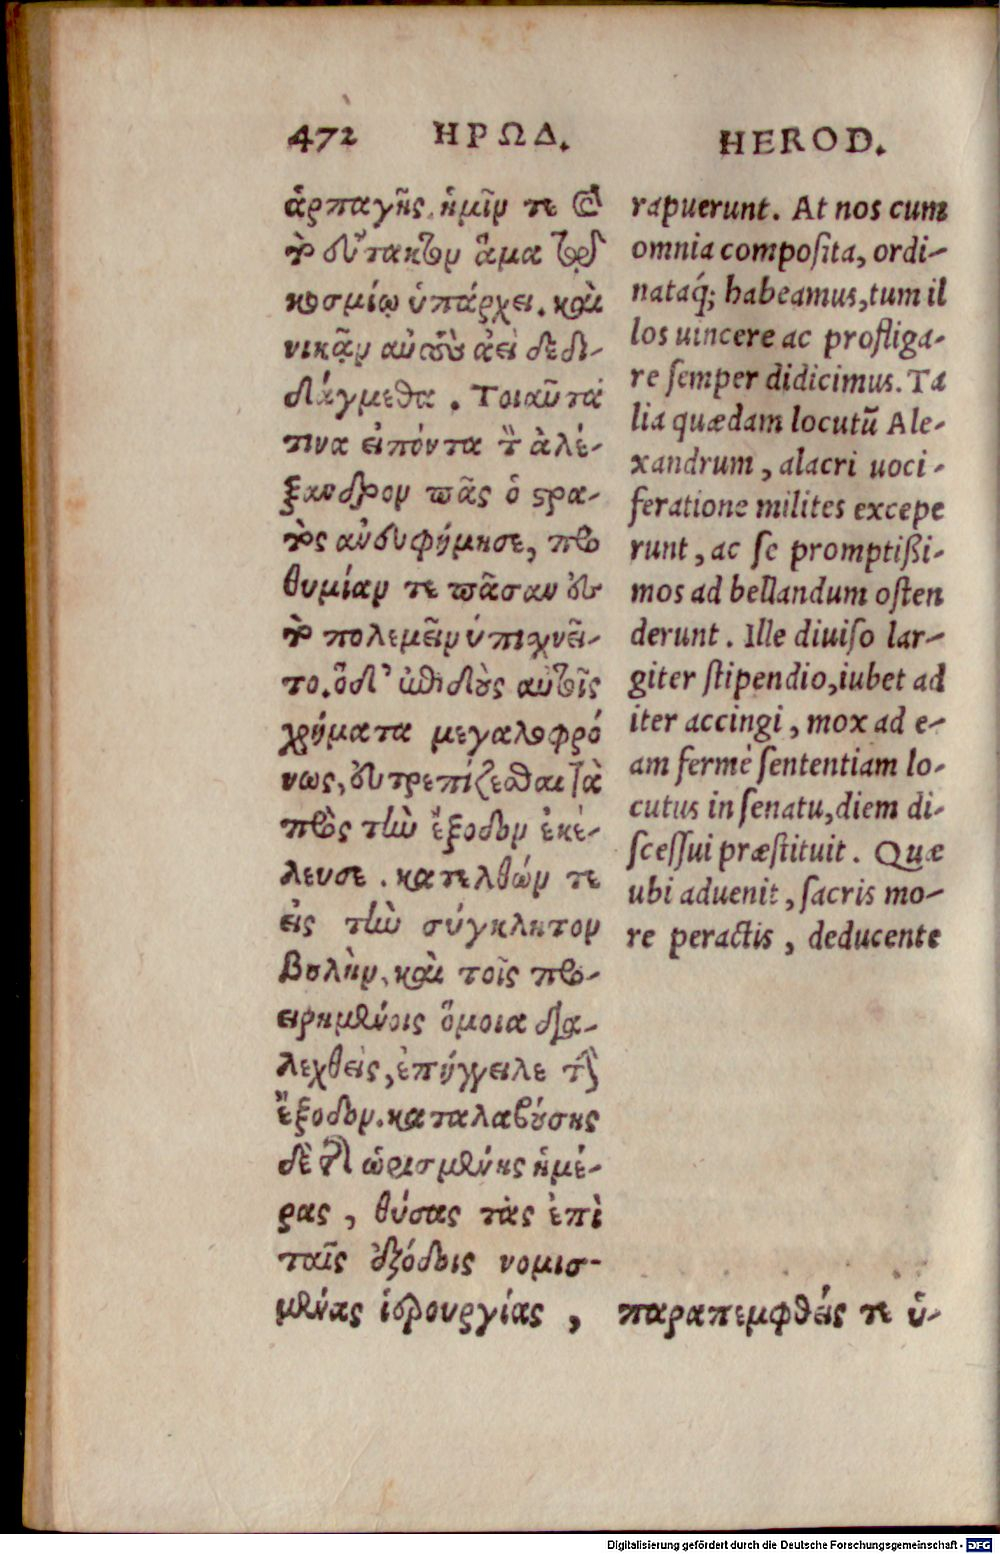 472 ΗΡΩΔ. HEROD.
ἁρπαγῆς, ἡμῖν τε καὶ
τὸ εὔτακτον ἅμα τῷ
κοσμίῳ ὑπάρχει. καὶ
νικᾷν αὐτοὺς ἀεὶ δεδι-
δάγμεθα. Τοιαῦτά
τινα εἰπόντα τὸν ἀλέ-
ξανδρον πᾶς ὁ στρα-
τὸς ἀνευφήμησε, προ
θυμίαν τε πᾶσαν εἰς
τὸ πολεμεῖν ὑπιχνεῖ-
το. ὁ δ' ἐπιδοὺς αὐτοῖς
χρήματα μεγαλοφρό
νως, εὐτρεπίζεσθαι τὰ
πρὸς τὴν ἔξοδον ἐκέ-
λευσε. κατελθών τε
εἰς τὴν σύγκλητον
βουλὴν, καὶ τοῖς προ-
ειρημένοις ὅμοια δια-
λεχθεὶς, ἐπήγγειλε τὴν
ἔξοδον. καταλαβούσης
δὲ τῆς ὡρισμένης ἡμέ-
ρας, θύσας τὰς ἐπὶ
ταῖς ἐξόδοις νομισ-
μένας ἱερουργίας,
rapuerunt. At nos cum
omnia composita, ordi-
nataq́; habeamus, tum il
los uincere ac profliga-
re semper didicimus. Ta
lia quædam locutũ Ale-
xandrum, alacri uoci-
feratione milites excepe
runt, ac se promptißi-
mos ad bellandum osten
derunt. Ille diuiso lar-
giter stipendio, iubet ad
iter accingi, mox ad e-
am fermè sententiam lo-
cutus in senatu, diem di-
scessui præstituit. Quæ
ubi aduenit, sacris mo-
re peractis, deducente
παραπεμφθείς τε ὑ-
Digitalisierung gefördert durch die Deutsche Forschungsgemeinschaft - DFG